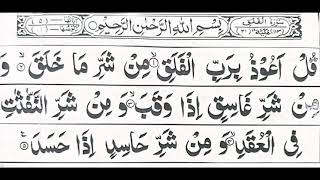 بِسْمِ اللّٰهِ الرَّحْمٰنِ الرَّحِيْمِ
قُلْ اَعُوْذُ بِرَبِّ الْفَلَقِ ۙ مِنْ شَرِّ مَا خَلَقَ ۙ وَ
مِنْ شَرِّ غَاسِقٍ اِذَا وَقَبَ ۙ وَ مِنْ شَرِّ النَّفّٰثٰتِ
فِى الْعُقَدِ ۙ وَ مِنْ شَرِّ حَاسِدٍ اِذَا حَسَدَ